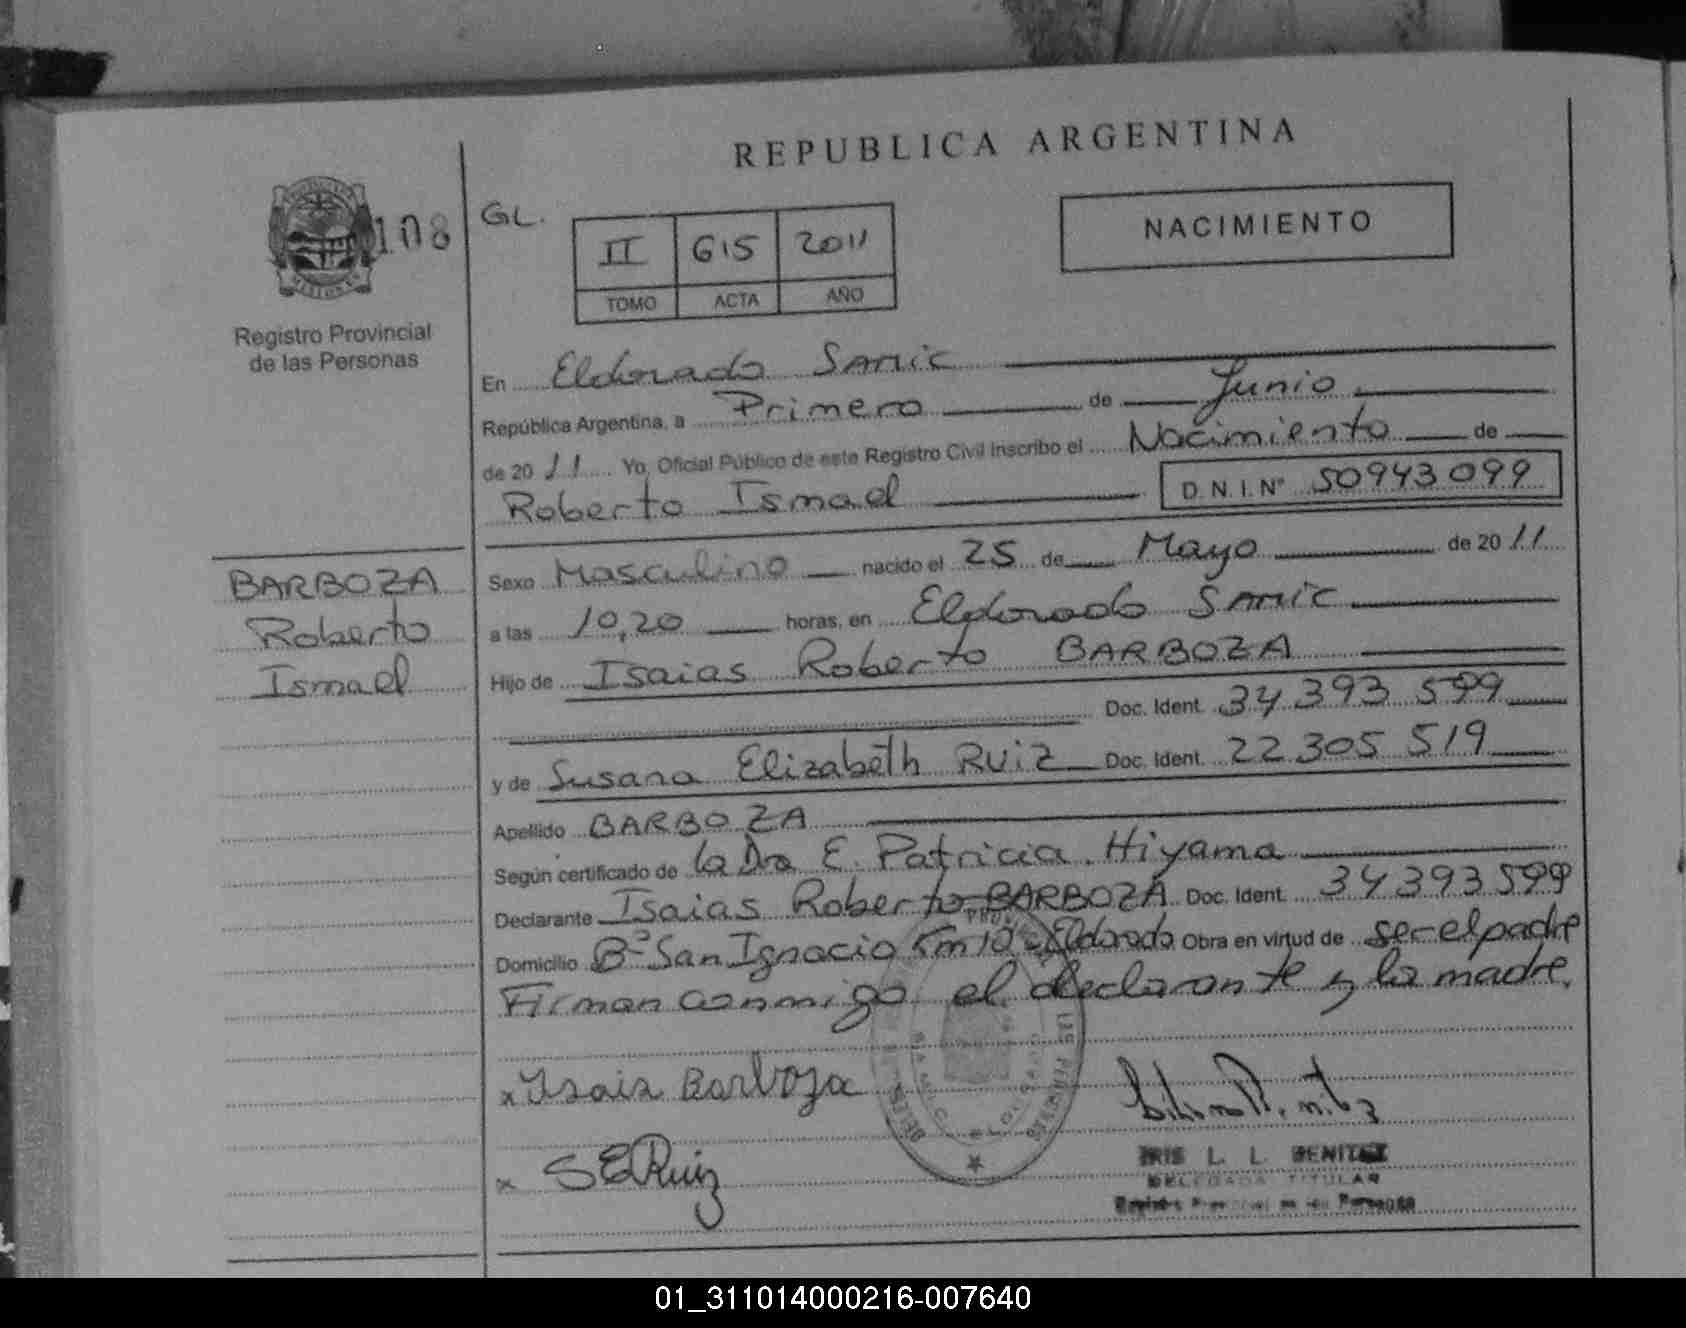 REPUBLICA ARGENTINA
MISIONES
108
GL.
NACIMIENTO
II 615 2011
TOMO ACTA AÑO
Registro Provincial
de las Personas
En Eldorado Samic
República Argentina, a Primero de Junio
de 2011 Yo, Oficial Público de este Registro Civil Inscribo el Nacimiento de
Roberto Ismael D.N.I. Nº 50943099
BARBOZA
Roberto
Ismael
Sexo Masculino nacido el 25 de Mayo de 2011
a las 10,20 horas, en Eldorado Samic
Hijo de Isaias Roberto BARBOZA
Doc. Ident. 34 393 599
y de Susana Elizabeth RUIZ Doc. Ident. 22 305 519
Apellido BARBOZA
Según certificado de la Dra E. Patricia Hiyama
Declarante Isaias Roberto BARBOZA Doc. Ident. 34393599
Domicilio Bº San Ignacio Km 10 - Eldorado Obra en virtud de ser el padre
Firman conmigo el declarante y la madre.
x Isais Barboza
x S E Ruiz
IRIS L. L. BENITEZ
DELEGADA TITULAR
Registro Provincial de las Personas
01_311014000216-007640